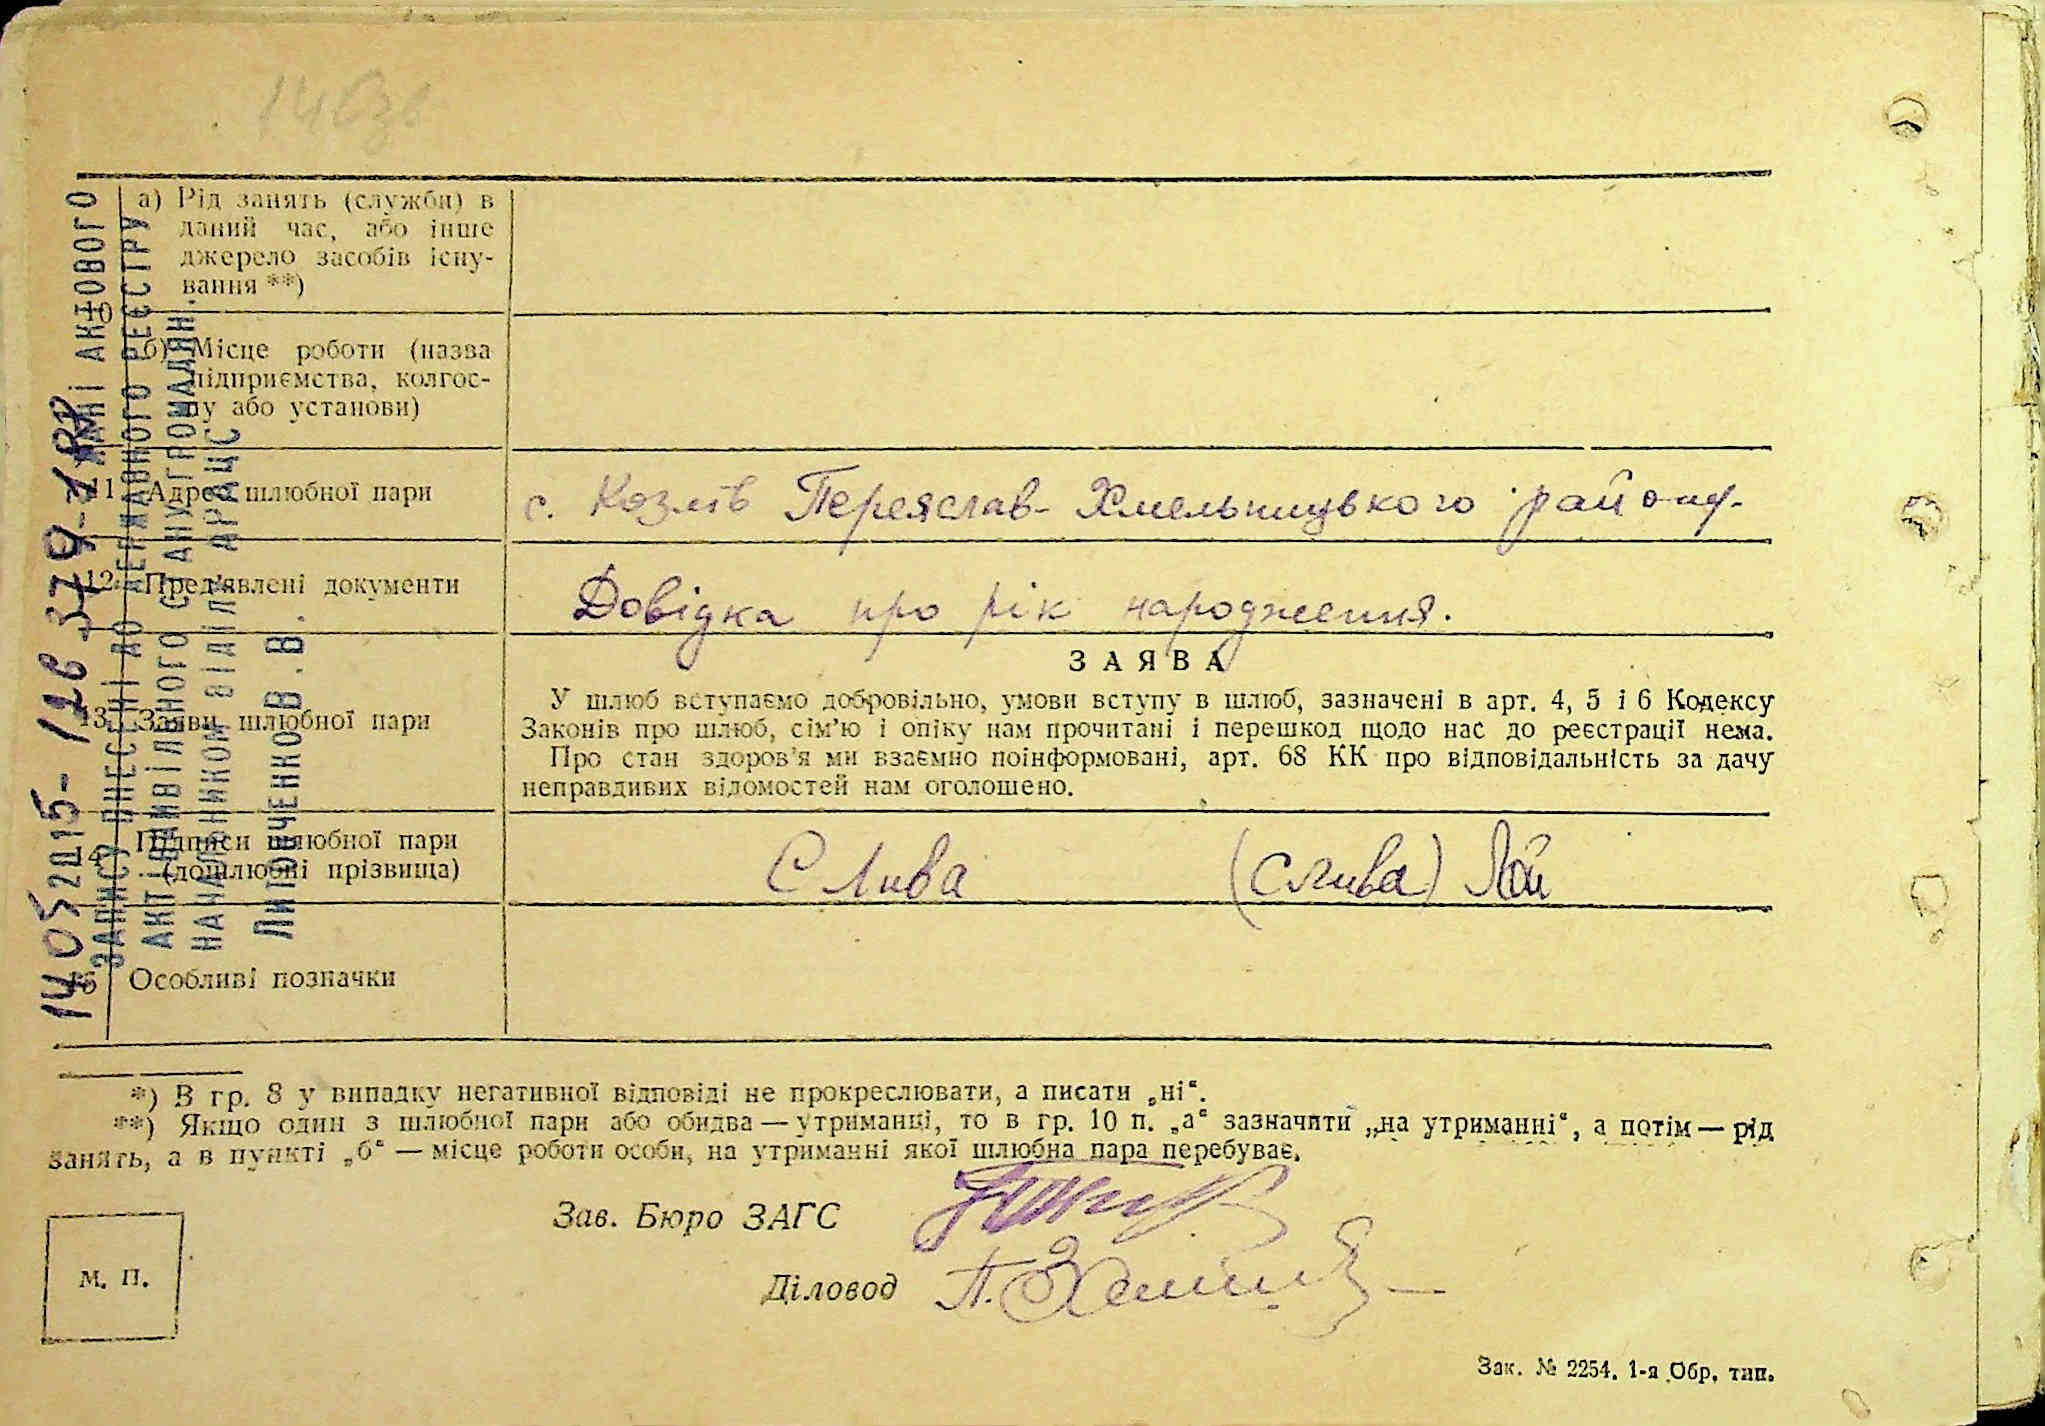 146зв
а) Рід занять (служби) в
даний час, або інше
джерело засобів існу-
вання **)
10
б) Місце роботи (назва
підприємства, колгос-
пу або установи)
11 Адреса шлюбної пари
с. Козлів Переяслав-Хмельницького району.
12 Пред'явлені документи
Довідка про рік народження.
13 Заяви шлюбної пари
ЗАЯВА
У шлюб вступаємо добровільно, умови вступу в шлюб, зазначені в арт. 4, 5 і 6 Кодексу
Законів про шлюб, сім'ю і опіку нам прочитані і перешкод щодо нас до реєстрації нема.
Про стан здоров'я ми взаємно поінформовані, арт. 68 КК про відповідальність за дачу
неправдивих відомостей нам оголошено.
14 Підписи шлюбної пари
(дошлюбні прізвища)
Слива (слива) Лой
15 Особливі позначки
*) В гр. 8 у випадку негативної відповіді не прокреслювати, а писати „ні“.
**) Якщо один з шлюбної пари або обидва — утриманці, то в гр. 10 п. „а“ зазначити „на утриманні“, а потім — рід
занять, а в пункті „б“ — місце роботи особи, на утриманні якої шлюбна пара перебуває.
Зав. Бюро ЗАГС
Діловод П.
М. П.
Зак. № 2254. 1-я Обр. тип.
ЗАПИС ВНЕСЕНІ ДО ДЕРЖАВНОГО РЕЄСТРУ
АКТІВ ЦИВІЛЬНОГО СТАНУ ГРОМАДЯН.
НАЧАЛЬНИКОМ ВІДІЛУ ДРАЦС
Литовченко В.В.